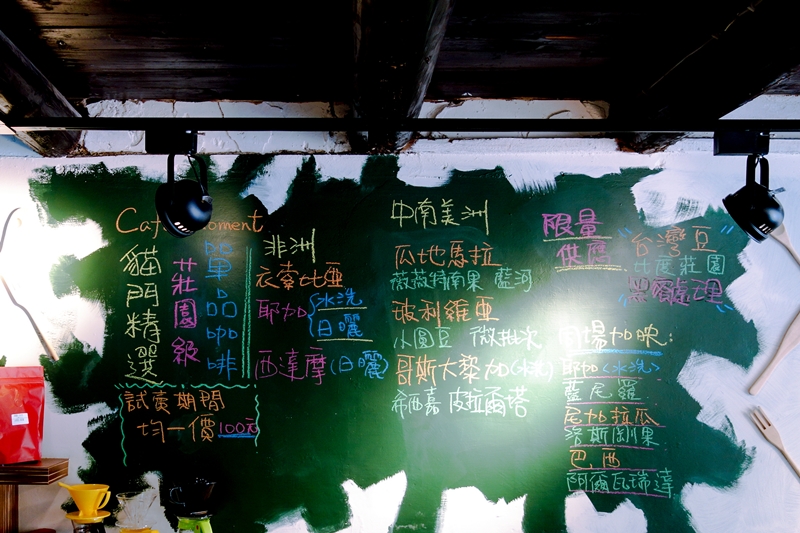 貓門精選
莊園級
單品咖啡
試賣期間
均一價100元
非洲
衣索比亞
耶加
水洗
日曬
西達摩(日曬)
中南美洲
瓜地馬拉
薇薇特南果 藍河
玻利維亞
小圓豆 微批次
哥斯大黎加(水洗)
希西嘉 皮拉爾塔
限量
供應
"台灣豆"
比度莊園
"黑蜜處理"
加映:
耶加<水洗>
藍尼羅
尼加拉瓜
洛斯剛果
巴西
阿爾瓦瑞達